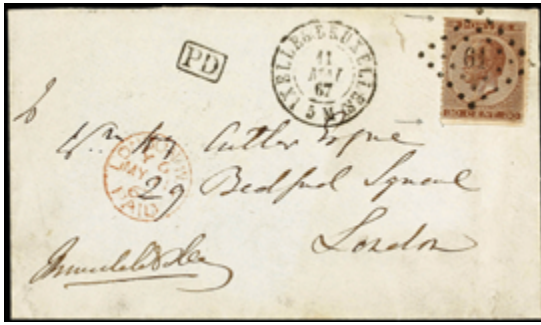 PD
IXELLES(BRUXELLES)
11
MAI
67
5 M
61
30 CENT. 30
LONDON
MY
PAID
Cutler Esqre
29 Bedford Square
London